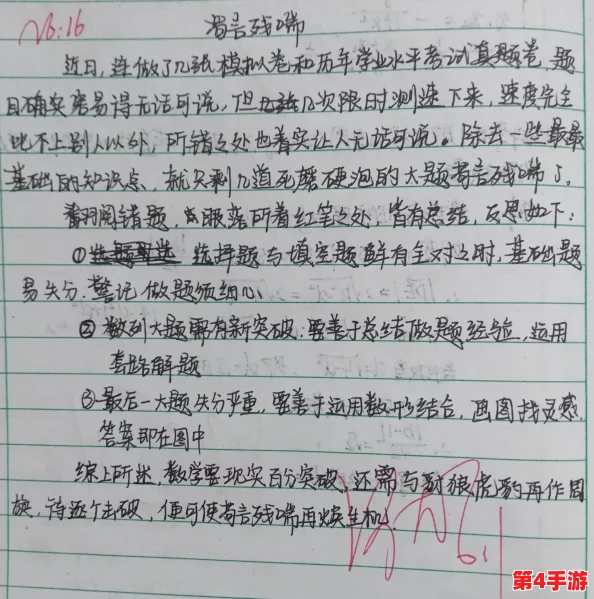 No:16 苟言残喘
近日，连做了几张模拟卷和历年学业水平考试真题卷，题
目确实容易得无话可说，但几次限时测速下来，速度完全
比不上别人以外，所错之处也着实让人无话可说。除去一些最最
基础的知识点，就只剩几道死磨硬泡的大题苟言残喘了。
翻阅错题，眼落所着红笔之处，皆有总结，反思如下：
① 选择题与填空题鲜有全对之时，基础题
易失分。警记做题须细心
② 数列大题需有新突破：要善于总结做题经验，运用
套路解题
③ 最后一大题失分严重，要善于运用数形结合，画图找灵感，
答案即在图中
综上所述，数学要现实百分突破，还需与豺狼虎豹再作周
旋，待逐个击破，便可使苟言残喘再焕生机。
6.1
第4手游